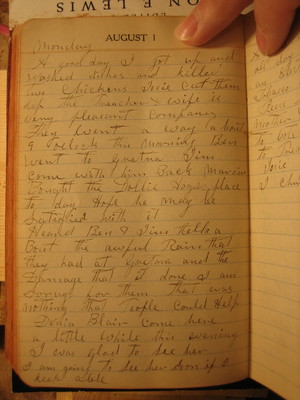 ON E LEWIS
EDITE
AUGUST 1
Monday
A good day I got up and
washed dishes and killed
two Chickens Josie Cut them
up the teacher & wife is
very pleasant Company
They went a way a bout
9 oclock this morning Ben
went to Gretna Jim
come with him Back Marvin
bought the Dollie place
to day Hope he may be
Satisfied with it
Heard Ben & Jim tell a
Bout the awful Rain that
they had at Gretna and the
Damage that it done I am
Sorry for them that was
nothing that People Could Help
Blair come here
a little while this evening
I was glad to see her
I am going to see her Soon if I
keep able